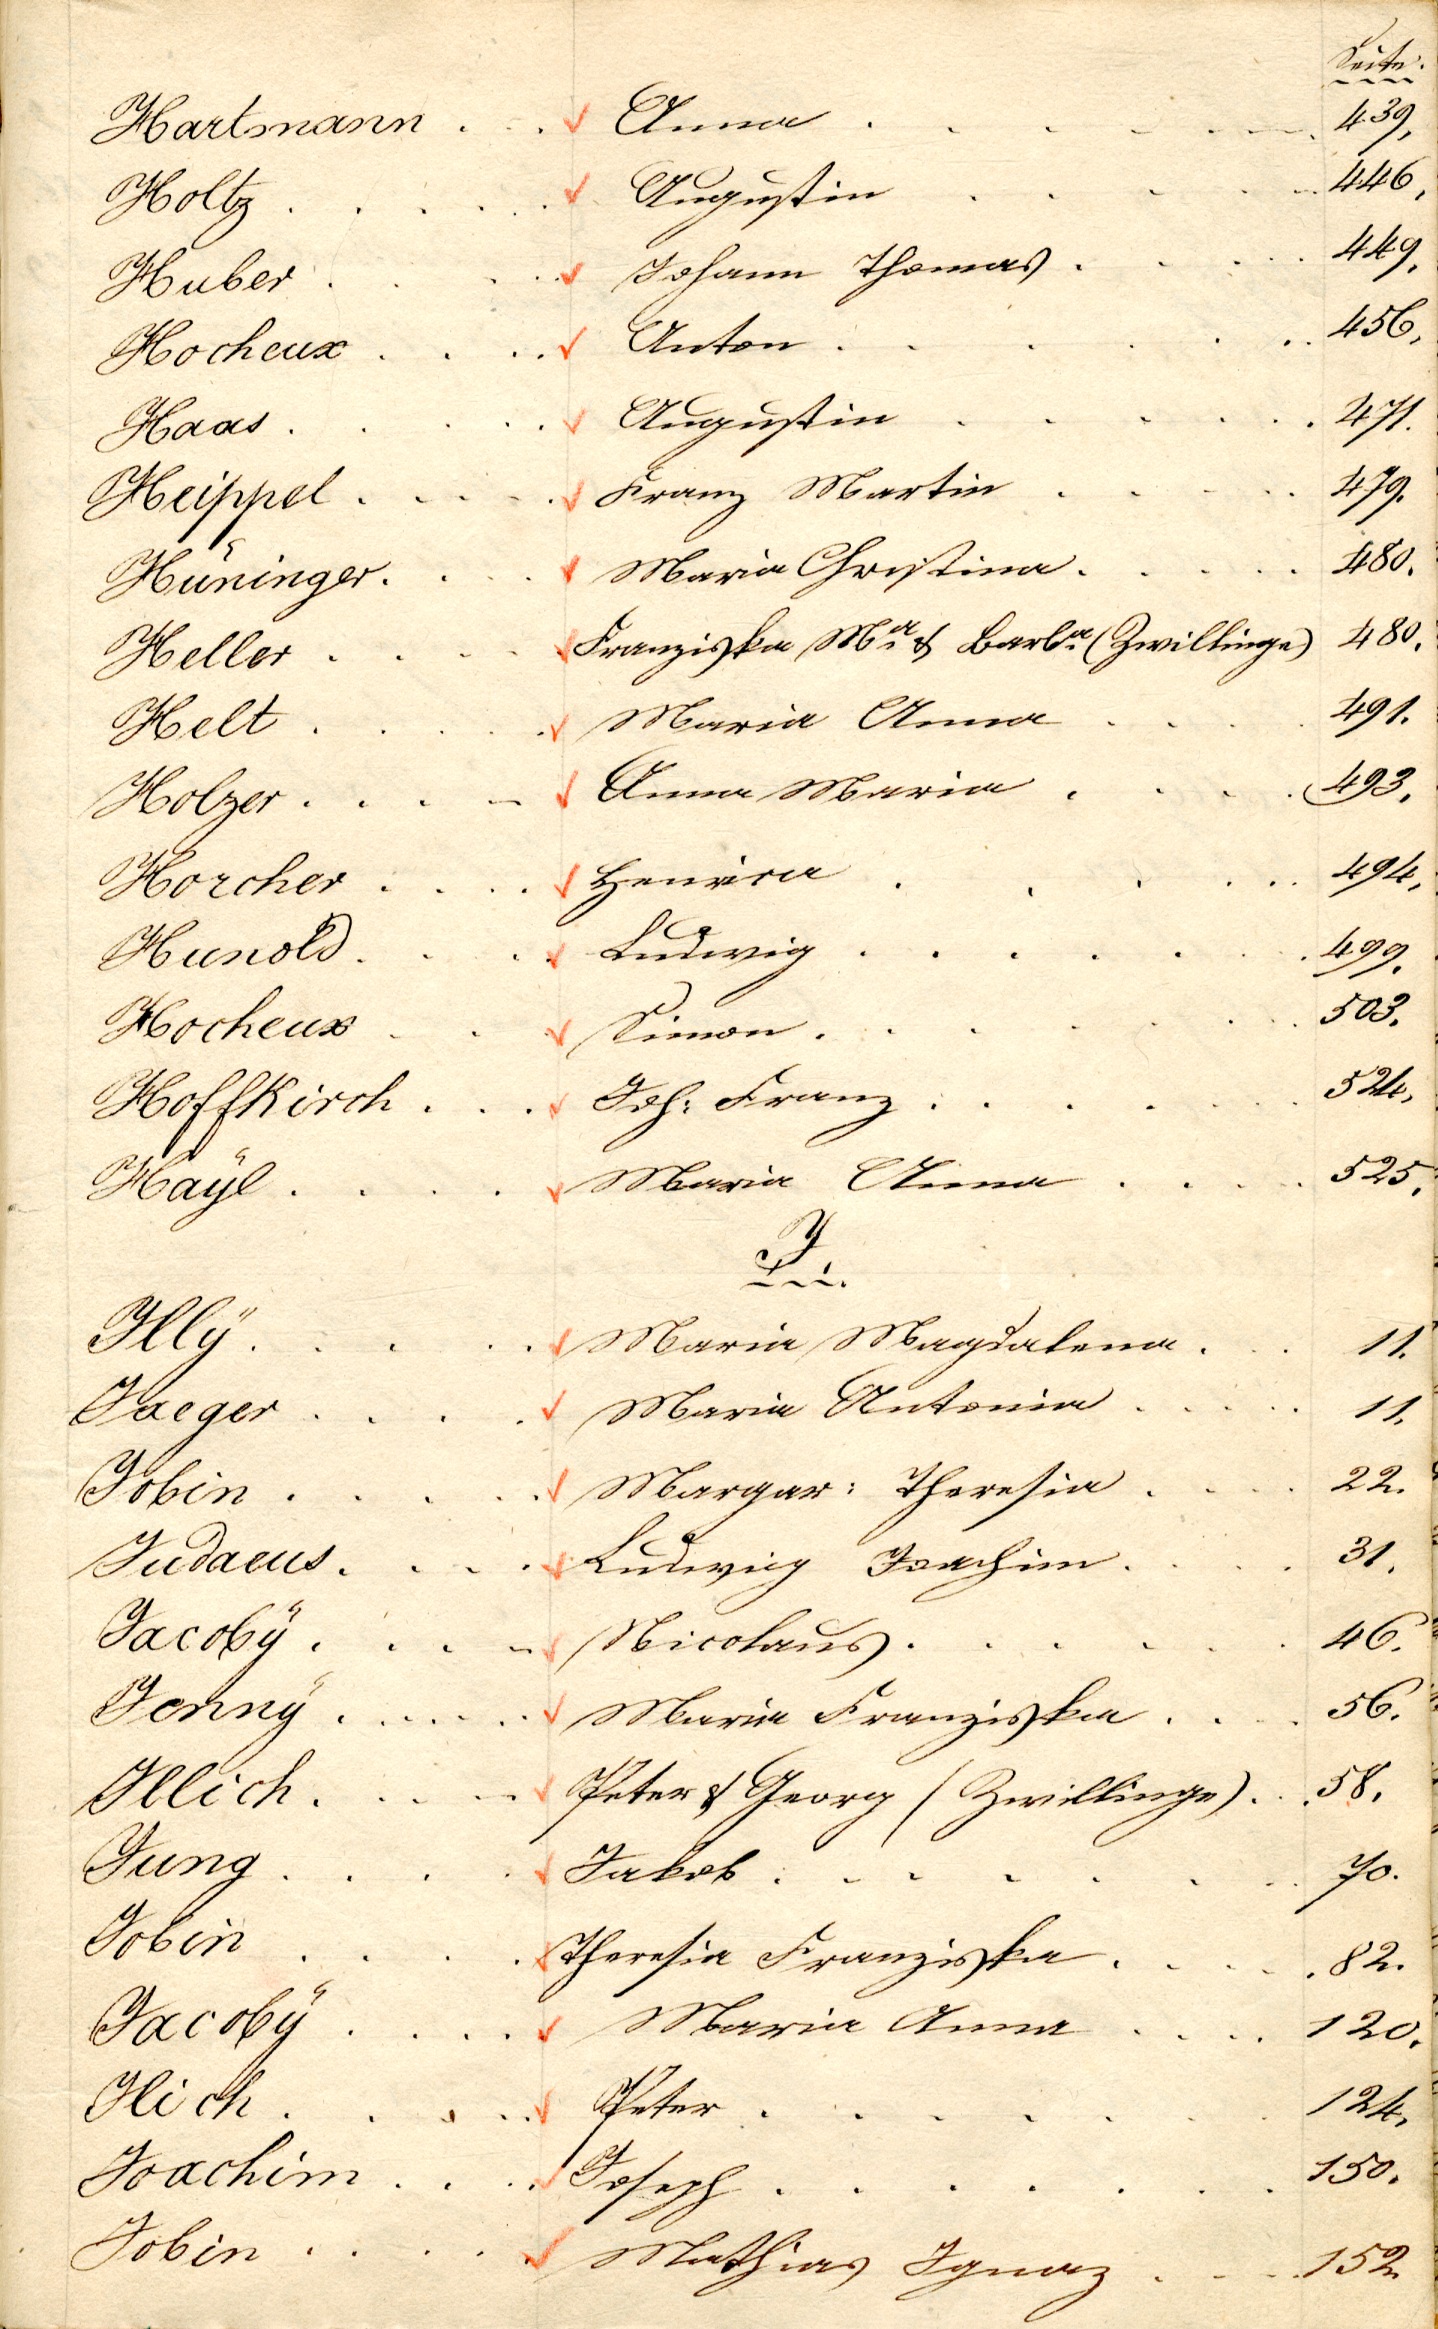 Seite.
Hartmann . . . Anna . . . . . . 439,
Holtz . . . . . Augustin . . . . . 446,
Huber . . . . Johann Thomas . . . . 449,
Hocheux . . . . Anton . . . . . . 456,
Haas . . . . . Augustin . . . . . . 471.
Heippel . . . . . Franz Martin . . . . . 479.
Hüninger . . . . Maria Christina . . . . . 480.
Heller . . . . Franziska Mª & Barbª (Zwillinge) 480.
Helt . . . . . Maria Anna . . . . 491.
Holzer . . . . Anna Maria . . . . 493,
Horcher . . . . Henrica . . . . . . 494,
Hunold . . . . Ludwig . . . . . . 499,
Hocheux . . . Simon . . . . . . . 503.
Hoffkirch . . . Joh: Franz . . . . . . 524,
Haÿl . . . . Maria Anna . . . . 525,
J.
Jllÿ . . . . . Maria Magdalena . . . 11.
Jaeger . . . . Maria Antonia . . . . . 11.
Jobin . . . . . Margar: Theresia . . . . 22.
Judaeus . . . . Ludwig Joachim . . . . 31.
Jacobÿ . . . . Nicolaus . . . . . . 46.
Jennÿ . . . . . Maria Franziska . . . . 56.
Jllich . . . . Peter & Georg (Zwillinge) . . 58.
Jung . . . . Jakob . . . . . . . 70.
Jobin . . . . Theresia Franziska . . . . . 82.
Jacobÿ . . . . Maria Anna . . . . 120.
Jlich . . . . . Peter . . . . . . . 124,
Joachim . . . . Joseph . . . . . . . 150.
Jobin . . . . . Mathias Ignaz . . . . 152